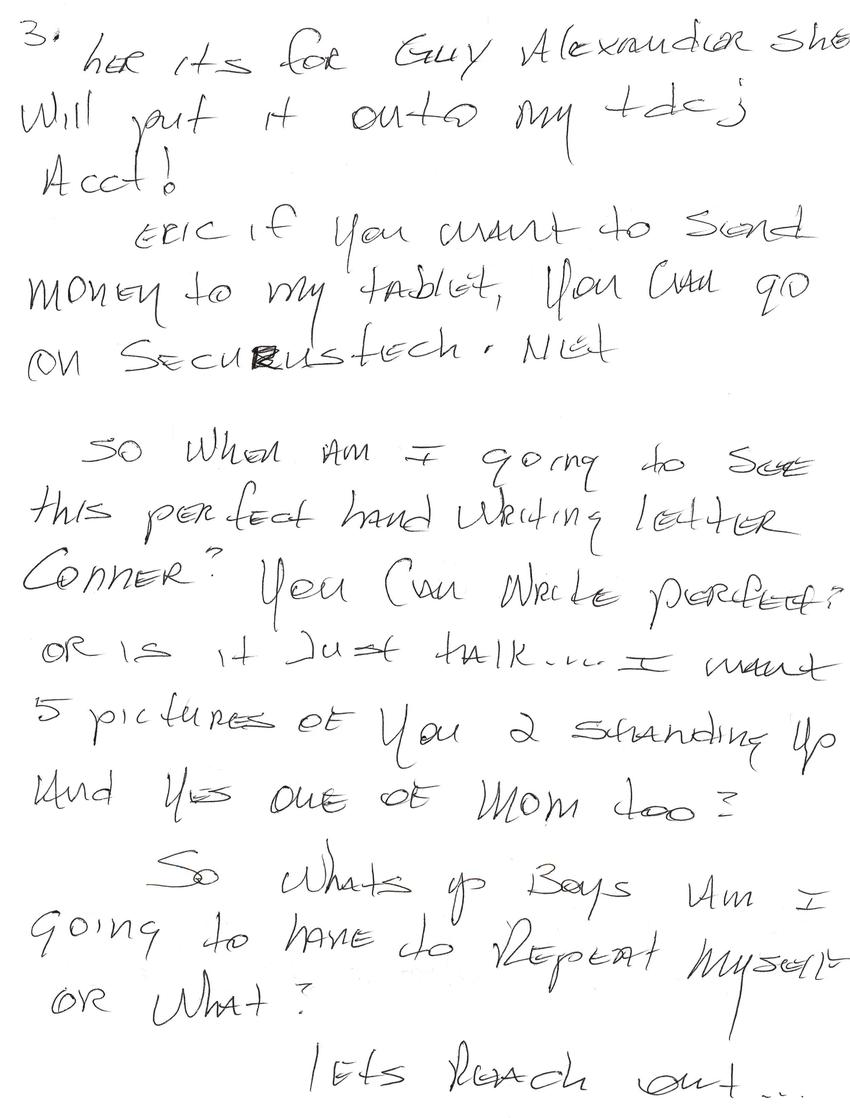 3. her its for Guy Alexander she
will put it onto my tdcj
Acct!
Eric if you want to send
money to my tablet, you can go
on Securustech.Net
So when am I going to see
this perfect hand writing letter
Conner? You can write perfect?
or is it Just talk.... I want
5 pictures of you 2 standing up
And yes one of Mom too?
So whats up Boys Am I
going to have to Repeat myself
or what?
lets Reach out...